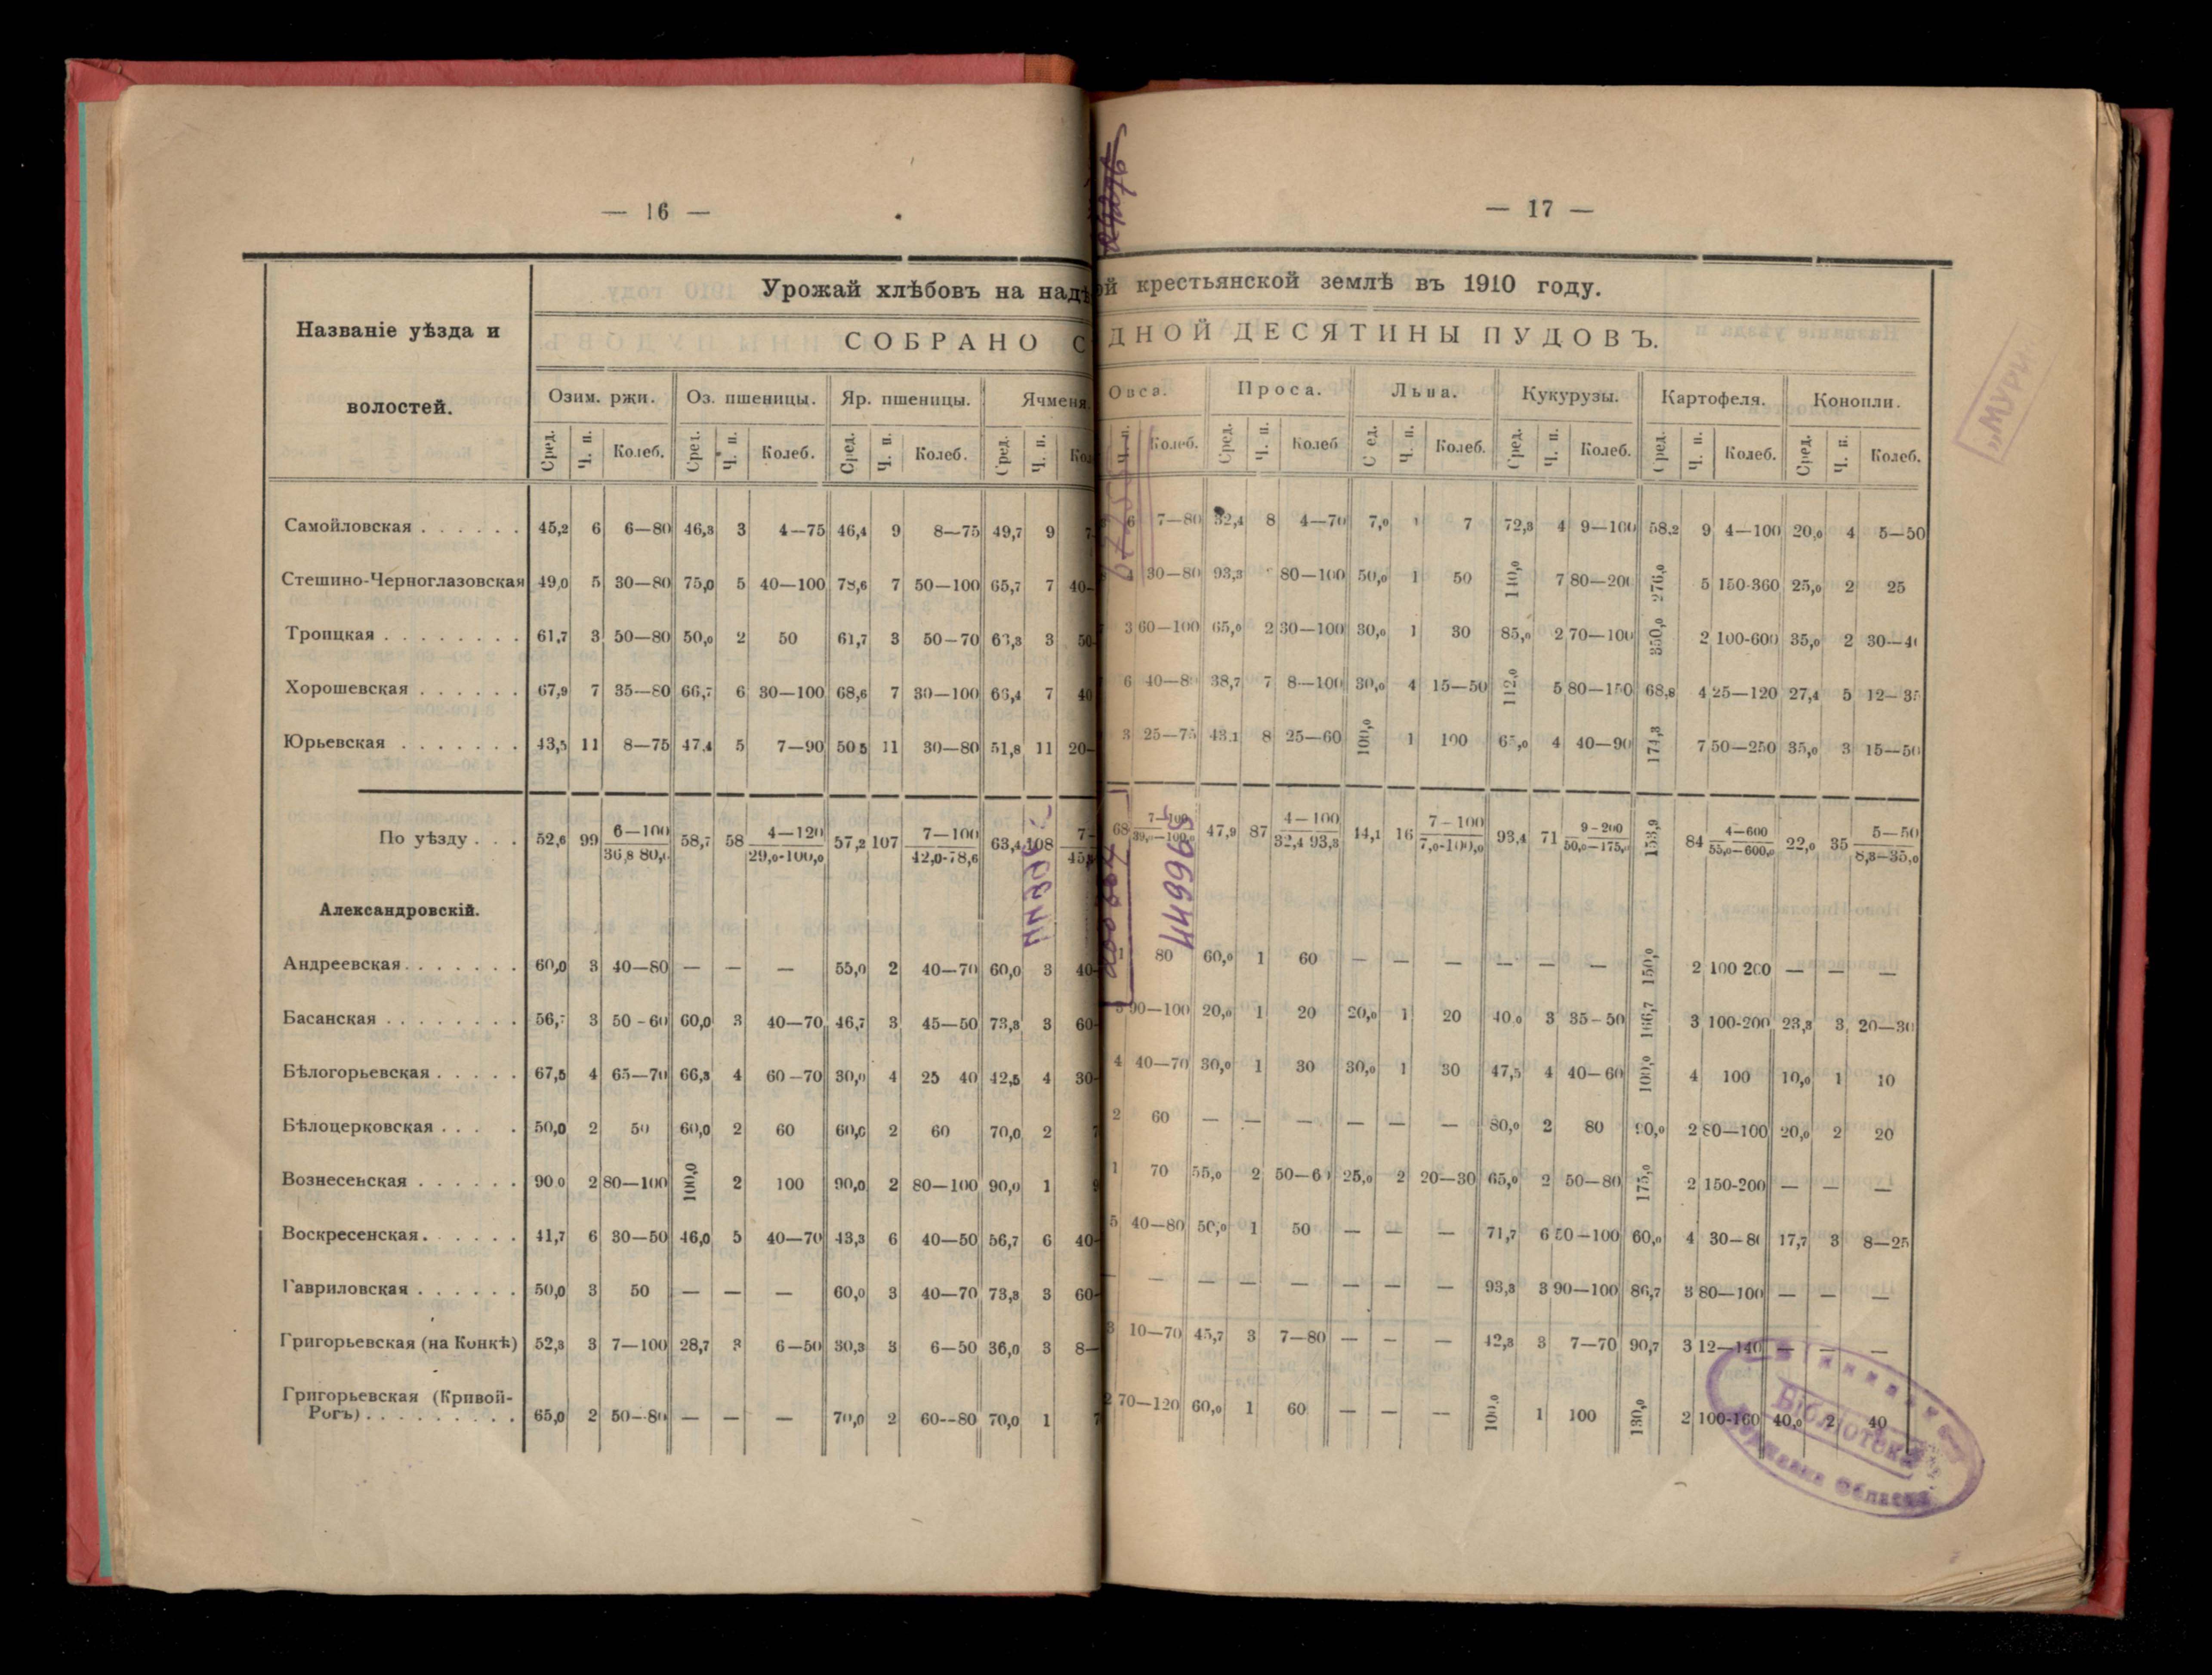 — 16 —
Названіе уѣзда и
волостей.
Урожай хлѣбовъ на надѣ
СОБРАНО С
Озим. ржи. Оз. пшеницы. Яр. пшеницы. Ячменя.
Сред. Ч. п. Колеб. Сред. Ч. п. Колеб. Сред. Ч. п. Колеб. Сред. Ч. п. Кол
Самойловская . . . . . . 45,2 6 6—80 46,3 3 4—75 46,4 9 8—75 49,7 9 7
Стешино-Черноглазовская 49,0 5 30—80 75,0 5 40—100 78,6 7 50—100 65,7 7 40-
Троицкая . . . . . . . . 61,7 3 50—80 50,0 2 50 61,7 3 50—70 63,3 3 50
Хорошевская . . . . . . 67,9 7 35—80 66,7 6 30—100 68,6 7 30—100 66,4 7 40
Юрьевская . . . . . . . 43,5 11 8—75 47,4 5 7—90 50,5 11 30—80 51,8 11 20-
По уѣзду . . . 52,6 99 6—100 58,7 58 4—120 57,2 107 7—100 63,4 108 7-
36,8 80,0 29,0-100,0 42,0-78,6 45,
Александровскій.
Андреевская . . . . . . . 60,0 3 40—80 — — — 55,0 2 40—70 60,0 3 40-
Басанская . . . . . . . . 56,7 3 50-60 60,0 3 40—70 46,7 3 45—50 73,3 3 60-
Бѣлогорьевская . . . . . 67,5 4 65—70 66,3 4 60—70 30,0 4 25 40 42,5 4 30-
Бѣлоцерковская . . . . 50,0 2 50 60,0 2 60 60,0 2 60 70,0 2 7
Вознесенская . . . . . . 90,0 2 80—100 100,0 2 100 90,0 2 80—100 90,0 1 9
Воскресенская . . . . . . 41,7 6 30—50 46,0 5 40—70 43,3 6 40—50 56,7 6 40-
Гавриловская . . . . . . 50,0 3 50 — — — 60,0 3 40—70 73,3 3 60-
Григорьевская (на Конкѣ) 52,3 3 7—100 28,7 3 6—50 30,3 3 6—50 36,0 3 8—
Григорьевская (Кривой-
Рогъ) . . . . . . . . . 65,0 2 50--80 — — — 70,0 2 60--80 70,0 1 7
— 17 —
ой крестьянской землѣ въ 1910 году.
ДНОЙ ДЕСЯТИНЫ ПУДОВЪ.
Овса. Проса. Льна. Кукурузы. Картофеля. Конопли.
Ч. п. Колеб. Сред. Ч. п. Колеб Сред. Ч. п. Колеб. Сред. Ч. п. Колеб. Сред. Ч. п. Колеб. Сред. Ч. п. Колеб.
6 7—80 32,4 8 4—70 7,0 1 7 72,3 4 9—100 58,2 9 4—100 20,0 4 5—50
30—80 93,3 80—100 50,0 1 50 140,0 7 80—200 276,0 5 150-360 25,0 2 25
3 60—100 65,0 2 30—100 30,0 1 30 85,0 2 70—100 350,0 2 100-600 35,0 2 30—40
6 40—80 38,7 7 8—100 30,0 4 15—50 112,0 5 80—150 68,8 4 25—120 27,4 5 12—35
3 25—75 43,1 8 25—60 100,0 1 100 65,0 4 40—90 174,3 7 50—250 35,0 3 15—50
68 7—100 47,9 87 4—100 14,1 16 7—100 93,4 71 9-200 153,9 84 4—600 22,0 35 5—50
32,4 93,3 7,0-100,0 50,0—175,0 55,0—600,0 8,3—35,0
1 80 60,0 1 60 — — — — — — 150,0 2 100 200 — — —
90—100 20,0 1 20 20,0 1 20 40,0 3 35-50 166,7 3 100-200 23,3 3 20—30
4 40—70 30,0 1 30 30,0 1 30 47,5 4 40—60 100,0 4 100 10,0 1 10
2 60 — — — — — — 80,0 2 80 90,0 2 80—100 20,0 2 20
1 70 55,0 2 50—60 25,0 2 20—30 65,0 2 50—80 175,0 2 150-200 — — —
5 40—80 50,0 1 50 — — — 71,7 6 50—100 60,0 4 30—80 17,7 3 8—25
— — — — — — — — 93,3 3 90—100 86,7 3 80—100 — — —
3 10—70 45,7 3 7—80 — — — 42,3 3 7—70 90,7 3 12—140 — — —
2 70—120 60,0 1 60 — — — 100,0 1 100 130,0 2 100-160 40,0 2 40
449965
Бібліотека